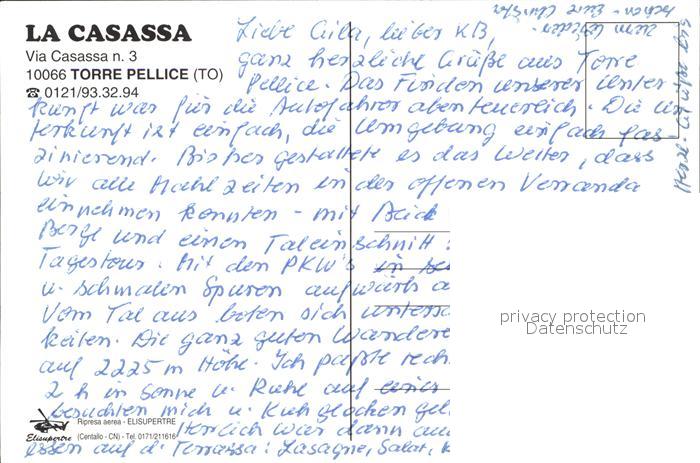 LA CASASSA
Via Casassa n. 3
10066 TORRE PELLICE (TO)
☎ 0121/93.32.94
Liebe Cilla, lieber KB,
ganz herzliche Grüße aus Torre
Pellice. Das Finden unserer Unter-
kunft war für die Autofahrer abenteuerlich. Die Un
terkunft ist einfach, die Umgebung einfach fas-
zinierend. Bisher gestattete es das Wetter, dass
wir alle Mahlzeiten in der offenen Veranda
einnehmen konnten - mit Blick
Berge und einen Taleinschnitt
Tagestour. Mit den PKW's in
u. schmalen Spuren aufwärts a
Vom Tal aus boten sich untersc
keiten. Die ganz guten Wandere
auf 2225 m Höhe. Ich paßte rech
2 h in Sonne u. Ruhe auf einer
besuchten mich u. Kuhglocken gel
Herrlich war dann au
essen auf d. Terrassa: Lasagne, Salat,
privacy protection
Datenschutz
Ripresa aerea - ELISUPERTRE
Elisupertre
(Centallo - CN) - Tel. 0171/211616